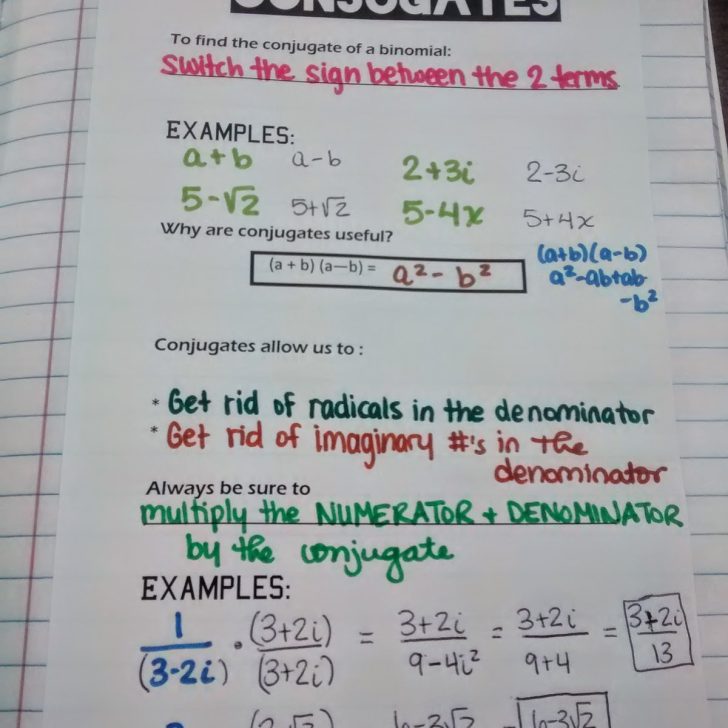 CONJUGATES
To find the conjugate of a binomial:
Switch the sign between the 2 terms
EXAMPLES:
a+b a-b 2+3i 2-3i
5-√2 5+√2 5-4x 5+4x
Why are conjugates useful?
(a + b) (a—b) = a² - b²
(a+b)(a-b)
a²-ab+ab
-b²
Conjugates allow us to :
* Get rid of radicals in the denominator
* Get rid of imaginary #'s in the
denominator
Always be sure to
multiply the NUMERATOR + DENOMINATOR
by the conjugate
EXAMPLES:
1/(3-2i) · (3+2i)/(3+2i) = 3+2i/9-4i² = 3+2i/9+4 = 3+2i/13